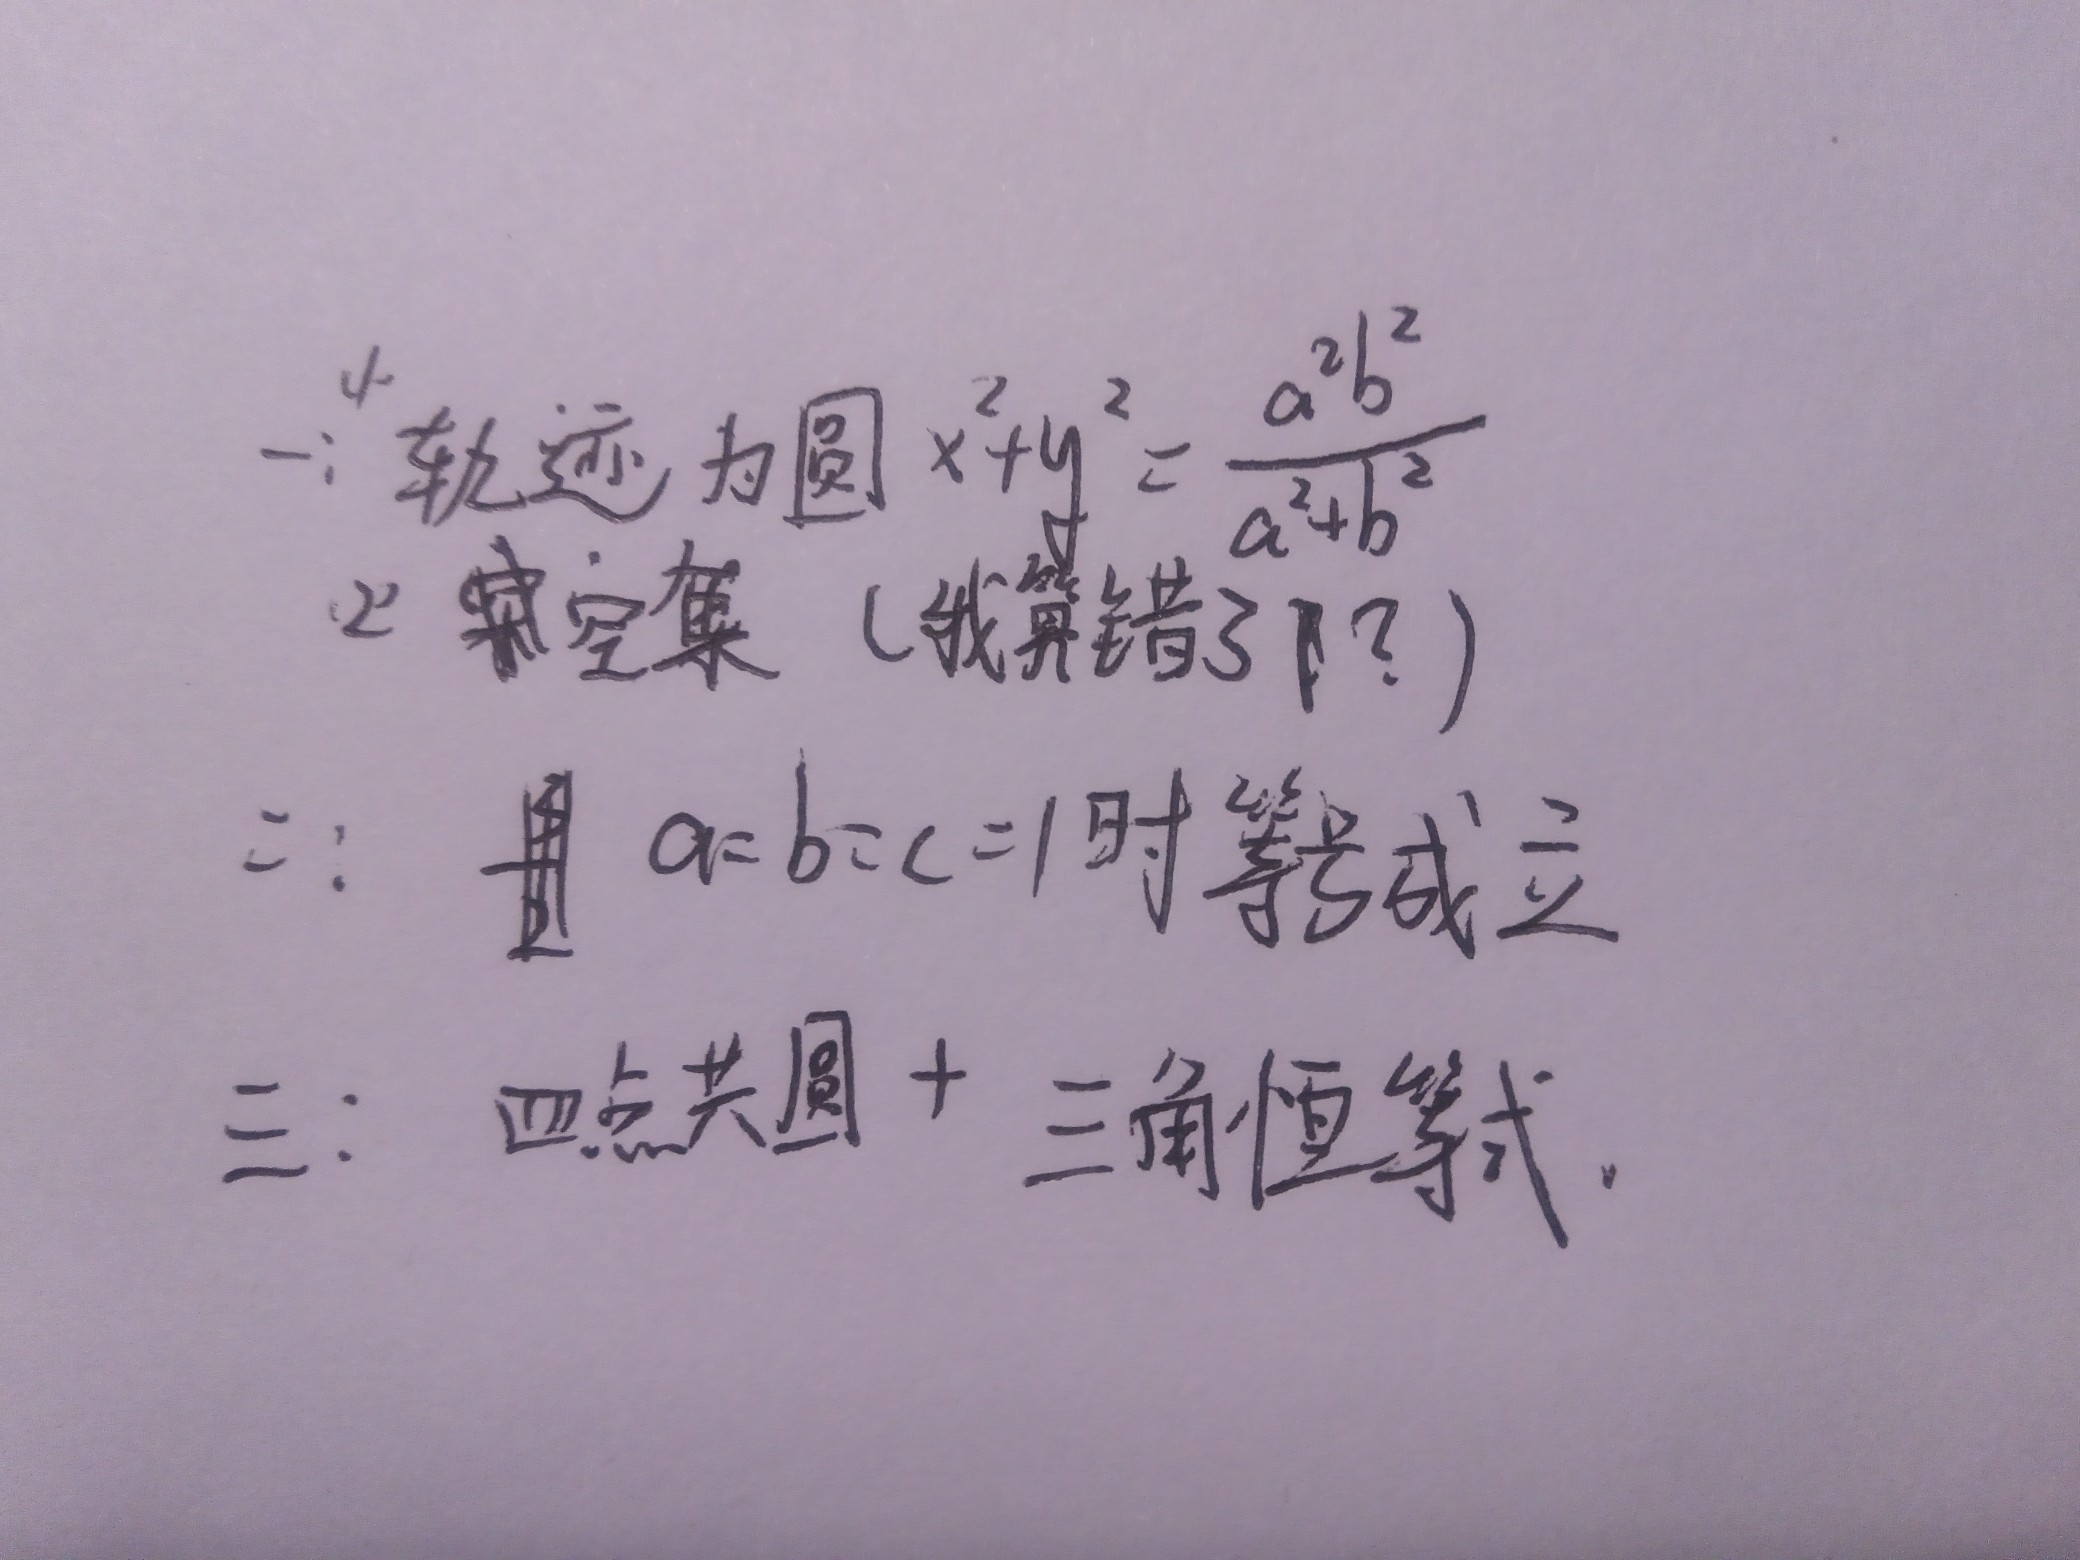 一: (1) 轨迹为圆 x²+y² = a²b²/(a²+b²)
(2) 空集 (我算错了?)
二: a=b=c=1时等号成立
三: 四点共圆 + 三角恒等式.